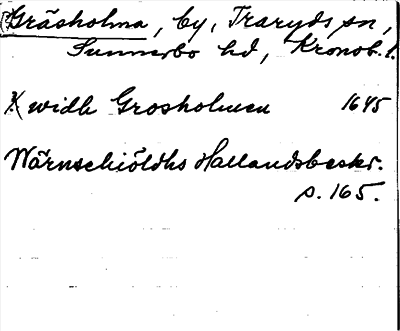 (Gräsholma, by, Traryds sn,
Sunnerbo hd, Kronob. l.
widh Grosholmen 1645
Wärnschiöldhs Hallandsbeskr.
s. 165.